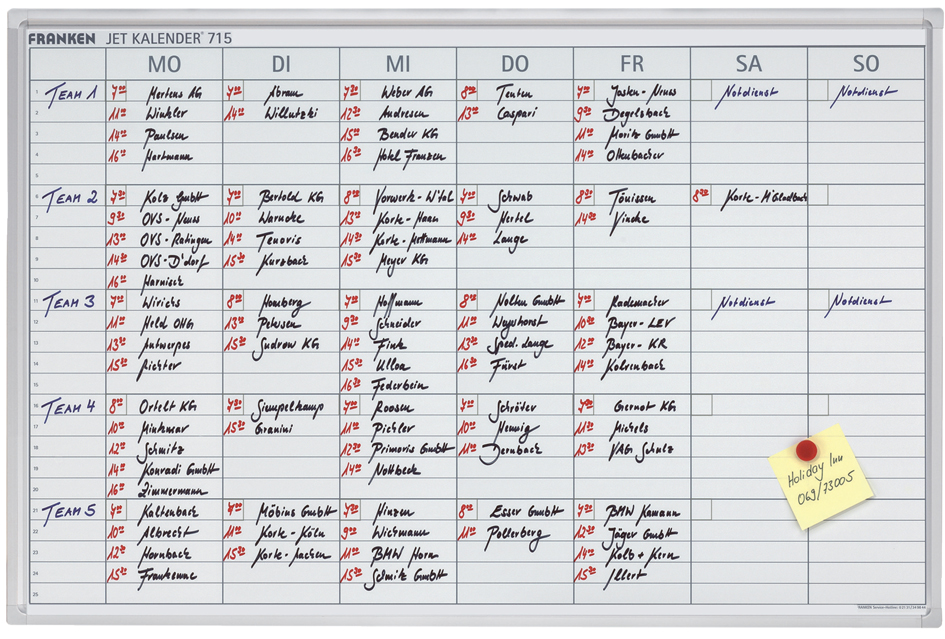 FRANKEN JET KALENDER® 715
MO DI MI DO FR SA SO
1 TEAM 1 7⁰⁰ Mertens AG 7⁰⁰ Abram 7³⁰ Weber AG 8⁰⁰ Tenten 7⁰⁰ Josten-Neuss Notdienst Notdienst
2 11⁰⁰ Winkler 14⁰⁰ Willutzki 12³⁰ Andresen 13⁰⁰ Caspari 9³⁰ Degelsbach
14⁰⁰ Paulsen 15⁰⁰ Bender KG 11⁰⁰ Moritz GmbH
4 16⁰⁰ Hartmann 16³⁰ Hotel Franzen 14⁰⁰ Oltenbacher
5
6 TEAM 2 7³⁰ Kolz GmbH 7⁰⁰ Bertold KG 8⁰⁰ Vorwerk-W'tal 7⁰⁰ Schwab 8³⁰ Tönissen 8³⁰ Korte-M'Gladbach
7 9³⁰ OVS-Neuss 10⁰⁰ Warncke 13⁰⁰ Korte-Haan 9³⁰ Hertel 14⁰⁰ Vincke
8 13⁰⁰ OVS-Ratingen 14⁰⁰ Tenoris 14³⁰ Korte-Mettmann 14⁰⁰ Lange
9 14³⁰ OVS-D'dorf 15³⁰ Kurzbach 15³⁰ Meyer KG
10 16⁰⁰ Harnisch
11 TEAM 3 7⁰⁰ Wirichs 8⁰⁰ Homberg 7⁰⁰ Hoffmann 8⁰⁰ Nolten GmbH 7⁰⁰ Rademacher Notdienst Notdienst
12 11⁰⁰ Held OHG 13⁰⁰ Petersen 9³⁰ Schneider 11⁰⁰ Weyhorst 10³⁰ Bayer-LEV
13 13⁰⁰ Antwerpes 15³⁰ Sudrow KG 14⁰⁰ Fink 13³⁰ Sped. Lange 12⁰⁰ Bayer-KR
14 15³⁰ Richter 15³⁰ Ulloa 16³⁰ Fürst 14⁰⁰ Kolvenbach
15 16³⁰ Federbein
16 TEAM 4 8⁰⁰ Ortelt KG 7³⁰ Siempelkamp 7⁰⁰ Roosen 7⁰⁰ Schröter 7⁰⁰ Giernot KG
17 10⁰⁰ Minkmar 15³⁰ Granini 11⁰⁰ Pichler 10⁰⁰ Hennig 11³⁰ Michels
18 12⁰⁰ Schmitz 12³⁰ Primoris GmbH 11⁰⁰ Dernbach 13³⁰ VAG Schulz
19 14⁰⁰ Konradi GmbH 14⁰⁰ Nottbeck
20 16⁰⁰ Zimmermann
Holiday Inn
069/73005
21 TEAM 5 7⁰⁰ Kaltenbach 7⁰⁰ Möbius GmbH 7³⁰ Hinzen 8⁰⁰ Esser GmbH 7³⁰ BMW Kamann
22 10⁰⁰ Albrecht 11⁰⁰ Korte-Köln 9⁰⁰ Wichmann 11⁰⁰ Pollerberg 12³⁰ Jäger GmbH
23 12⁰⁰ Hornbach 15³⁰ Korte-Aachen 11⁰⁰ BMW Horn 14⁰⁰ Kolb + Kern
24 15³⁰ Frankenne 15³⁰ Schmitz GmbH 15³⁰ Illert
25